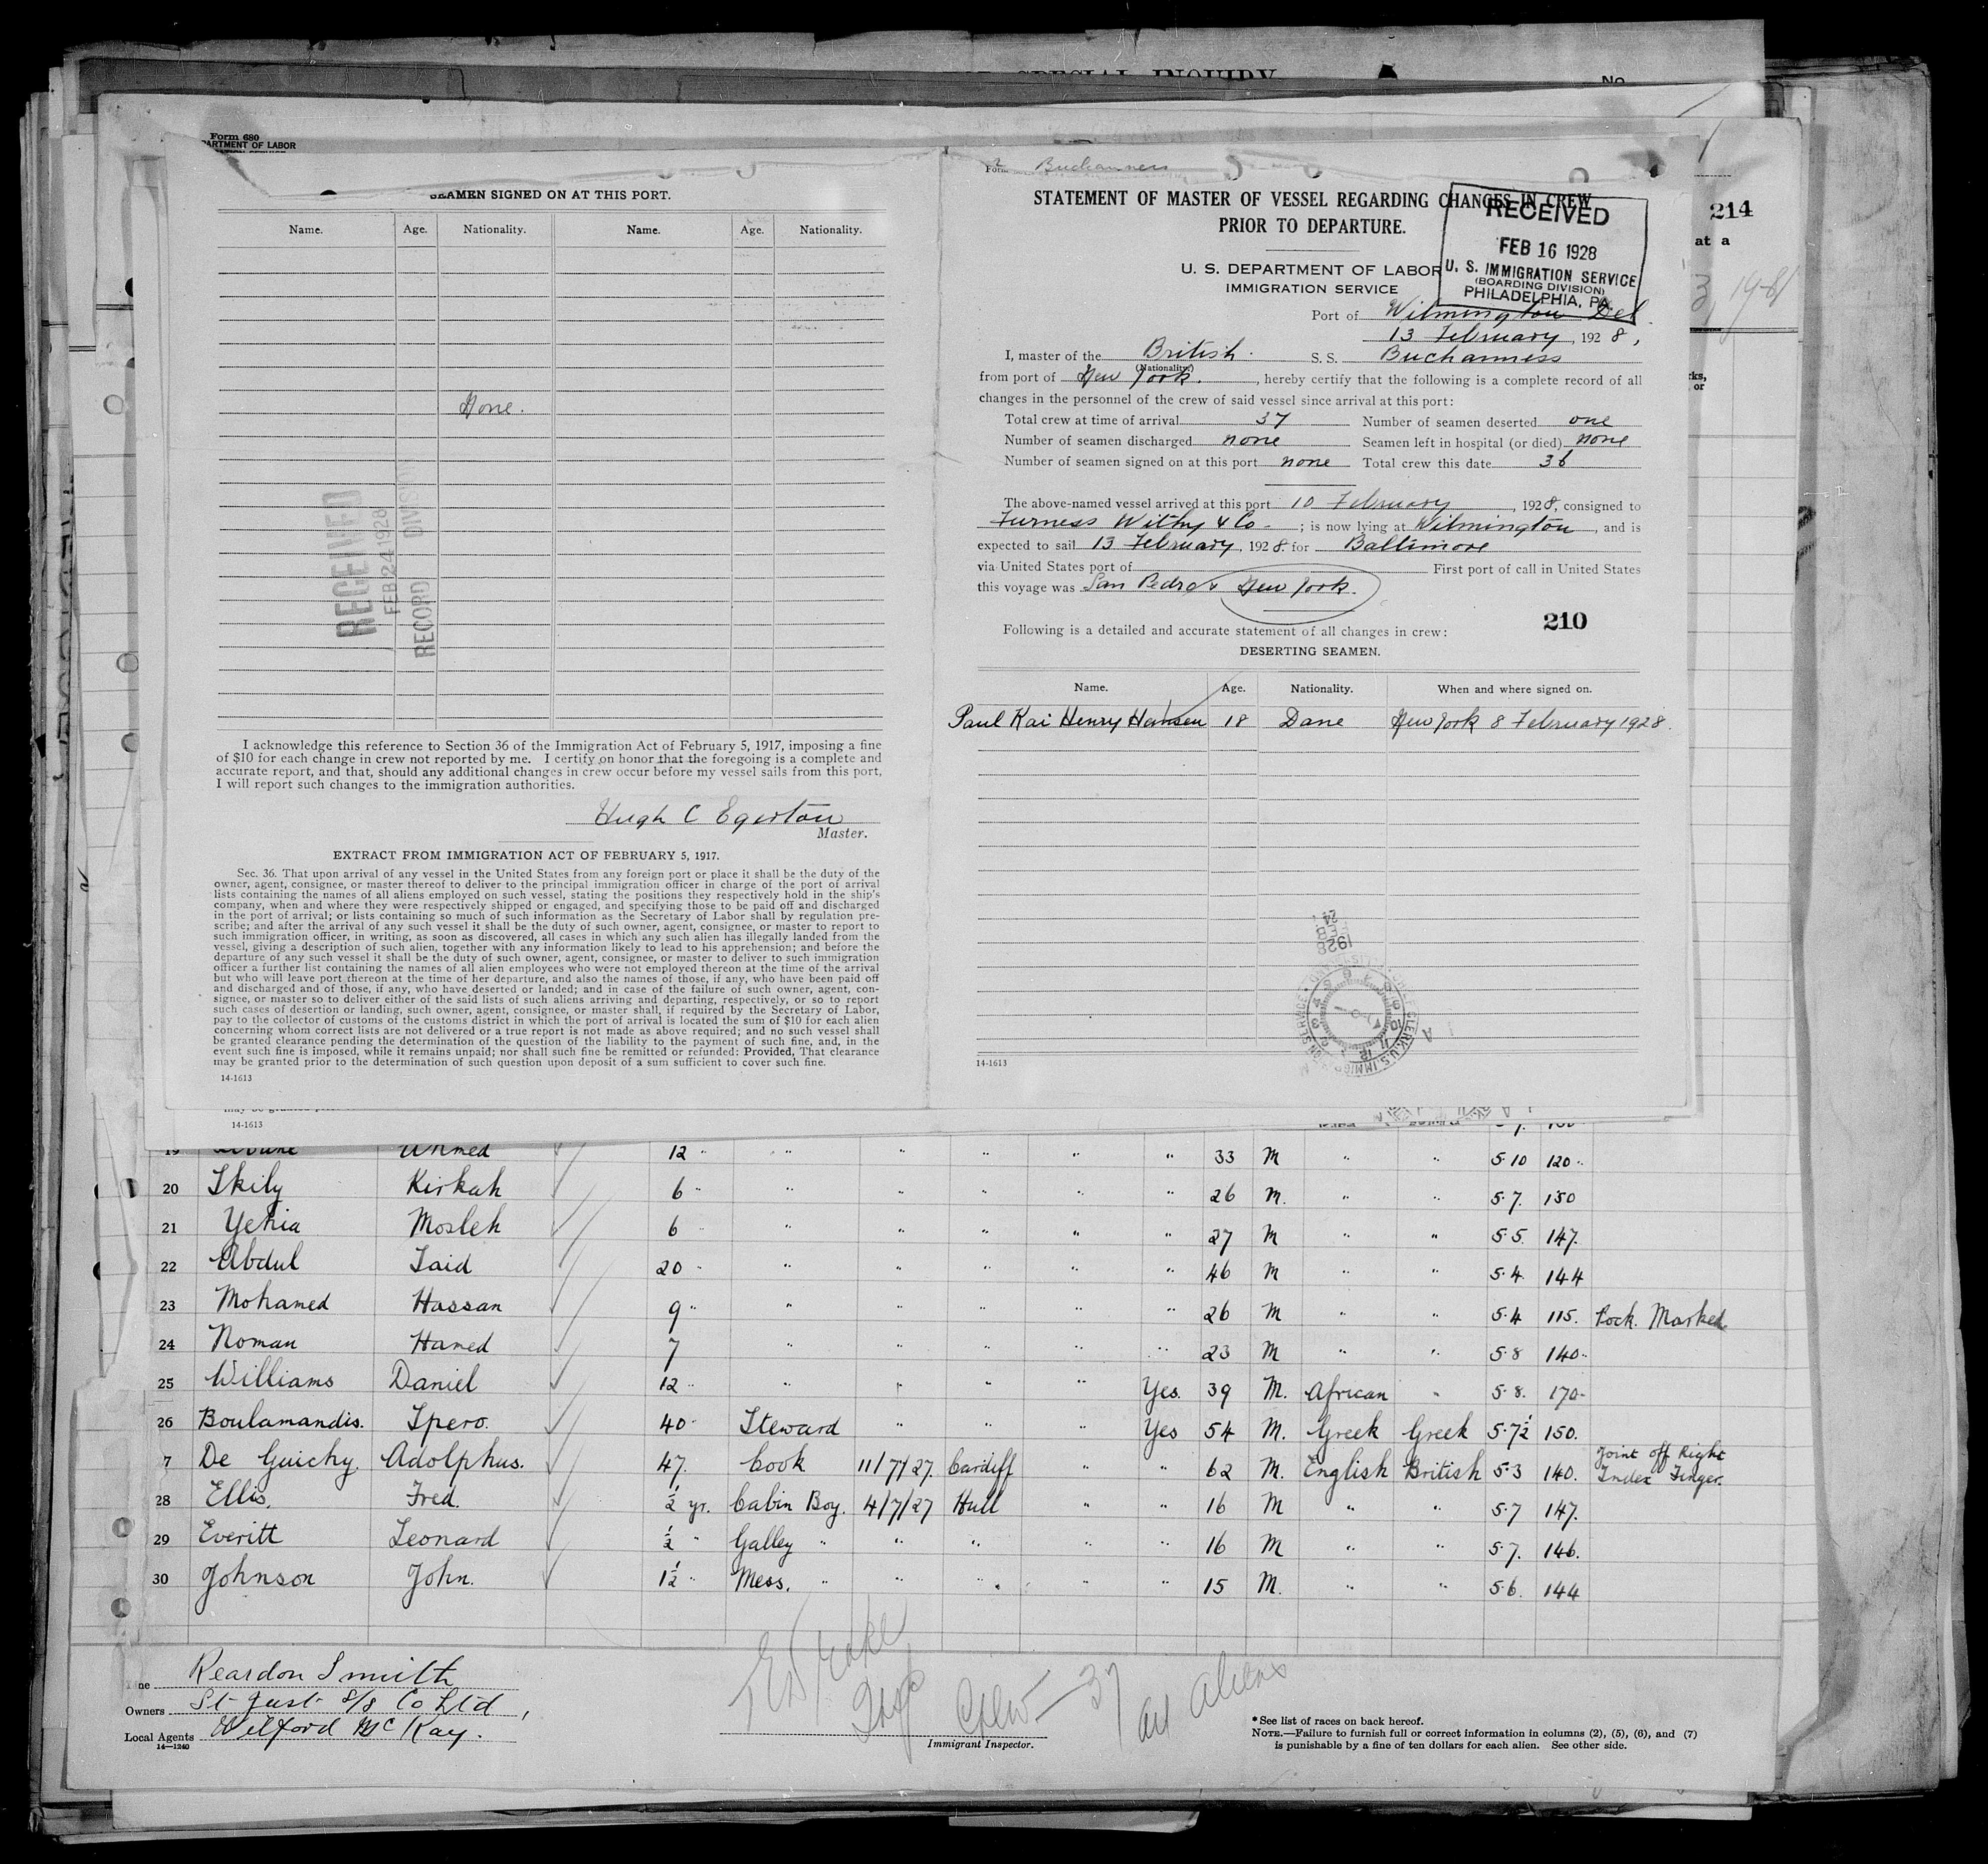 SPECIAL INQUIRY
No.
Form 680
DEPARTMENT OF LABOR
SEAMEN SIGNED ON AT THIS PORT.
Name. Age. Nationality. Name. Age. Nationality.
None.
RECEIVED
FEB 24 1928
RECORD DIVISION
I acknowledge this reference to Section 36 of the Immigration Act of February 5, 1917, imposing a fine
of $10 for each change in crew not reported by me. I certify on honor that the foregoing is a complete and
accurate report, and that, should any additional changes in crew occur before my vessel sails from this port,
I will report such changes to the immigration authorities.
Hugh C Egerton
Master.
EXTRACT FROM IMMIGRATION ACT OF FEBRUARY 5, 1917.
Sec. 36. That upon arrival of any vessel in the United States from any foreign port or place it shall be the duty of the
owner, agent, consignee, or master thereof to deliver to the principal immigration officer in charge of the port of arrival
lists containing the names of all aliens employed on such vessel, stating the positions they respectively hold in the ship's
company, when and where they were respectively shipped or engaged, and specifying those to be paid off and discharged
in the port of arrival; or lists containing so much of such information as the Secretary of Labor shall by regulation pre-
scribe; and after the arrival of any such vessel it shall be the duty of such owner, agent, consignee, or master to report to
such immigration officer, in writing, as soon as discovered, all cases in which any such alien has illegally landed from the
vessel, giving a description of such alien, together with any information likely to lead to his apprehension; and before the
departure of any such vessel it shall be the duty of such owner, agent, consignee, or master to deliver to such immigration
officer a further list containing the names of all alien employees who were not employed thereon at the time of the arrival
but who will leave port thereon at the time of her departure, and also the names of those, if any, who have been paid off
and discharged and of those, if any, who have deserted or landed; and in case of the failure of such owner, agent, con-
signee, or master so to deliver either of the said lists of such aliens arriving and departing, respectively, or so to report
such cases of desertion or landing, such owner, agent, consignee, or master shall, if required by the Secretary of Labor,
pay to the collector of customs of the customs district in which the port of arrival is located the sum of $10 for each alien
concerning whom correct lists are not delivered or a true report is not made as above required; and no such vessel shall
be granted clearance pending the determination of the question of the liability to the payment of such fine, and, in the
event such fine is imposed, while it remains unpaid; nor shall such fine be remitted or refunded: Provided, That clearance
may be granted prior to the determination of such question upon deposit of a sum sufficient to cover such fine.
14-1613
14-1613
Form 2 Buchanness
STATEMENT OF MASTER OF VESSEL REGARDING CHANGES IN CREW
PRIOR TO DEPARTURE.
RECEIVED
FEB 16 1928
U. S. IMMIGRATION SERVICE
(BOARDING DIVISION)
PHILADELPHIA, PA.
214
at a
U. S. DEPARTMENT OF LABOR
IMMIGRATION SERVICE
Port of Wilmington Del
13 February, 1928,
I, master of the British. S. S. Buchanness
(Nationality)
from port of New York., hereby certify that the following is a complete record of all
changes in the personnel of the crew of said vessel since arrival at this port:
Total crew at time of arrival 37 Number of seamen deserted one
Number of seamen discharged none Seamen left in hospital (or died) none
Number of seamen signed on at this port none Total crew this date 36
The above-named vessel arrived at this port 10 February 1928, consigned to
Furness Withy & Co ; is now lying at Wilmington, and is
expected to sail 13 February, 1928. for Baltimore
via United States port of First port of call in United States
this voyage was San Pedro & New York.
210
Following is a detailed and accurate statement of all changes in crew:
DESERTING SEAMEN.
Name. Age. Nationality. When and where signed on.
Paul Kai Henry Hansen 18 Dane New York 8 February 1928.
FEB 24 1928
14-1613
19 Ahmed 12 " " " " " " 33 M " " 5·10 120 "
20 Skily Kirkah 6 " " " " " " 26 M. " " 5·7. 150
21 Yehia Mosleh 6 " " " " " " 27 M " " 5·5. 147.
22 Abdul Said 20 " " " " " " 46 M " " 5·4. 144
23 Mohamed Hassan 9 " " " " " " 26 M " " 5·4 115. Pock. Marked
24 Noman Hamed 7 " " " " " 23 M " " 5·8 140 "
25 Williams Daniel 12 " " " " " Yes. 39 M. African " 5·8. 170
26 Boulamandis. Spero. 40 " Steward " " " Yes 54 M. Greek Greek 5·7½ 150.
7 De Guichy. Adolphus. 47. Cook 11/7/27. Cardiff " " 62 M. English British 5·3 140. Joint off Right Index Finger.
28 Ellis. Fred. ½ yr. Cabin Boy. 4/7/27 Hull " " 16 M " " 5·7 147.
29 Everitt Leonard ½ " Galley " " " " " 16 M " " 5·7. 146.
30 Johnson John. 1½ " Mess. " " " " " 15 M. " " 5·6. 144
Line Reardon Smith
Owners St Just S/S Co Ltd,
Local Agents Wilford McKay.
14—1240
Insp
Crew — 37
all aliens
Immigrant Inspector.
*See list of races on back hereof.
NOTE.—Failure to furnish full or correct information in columns (2), (5), (6), and (7)
is punishable by a fine of ten dollars for each alien. See other side.